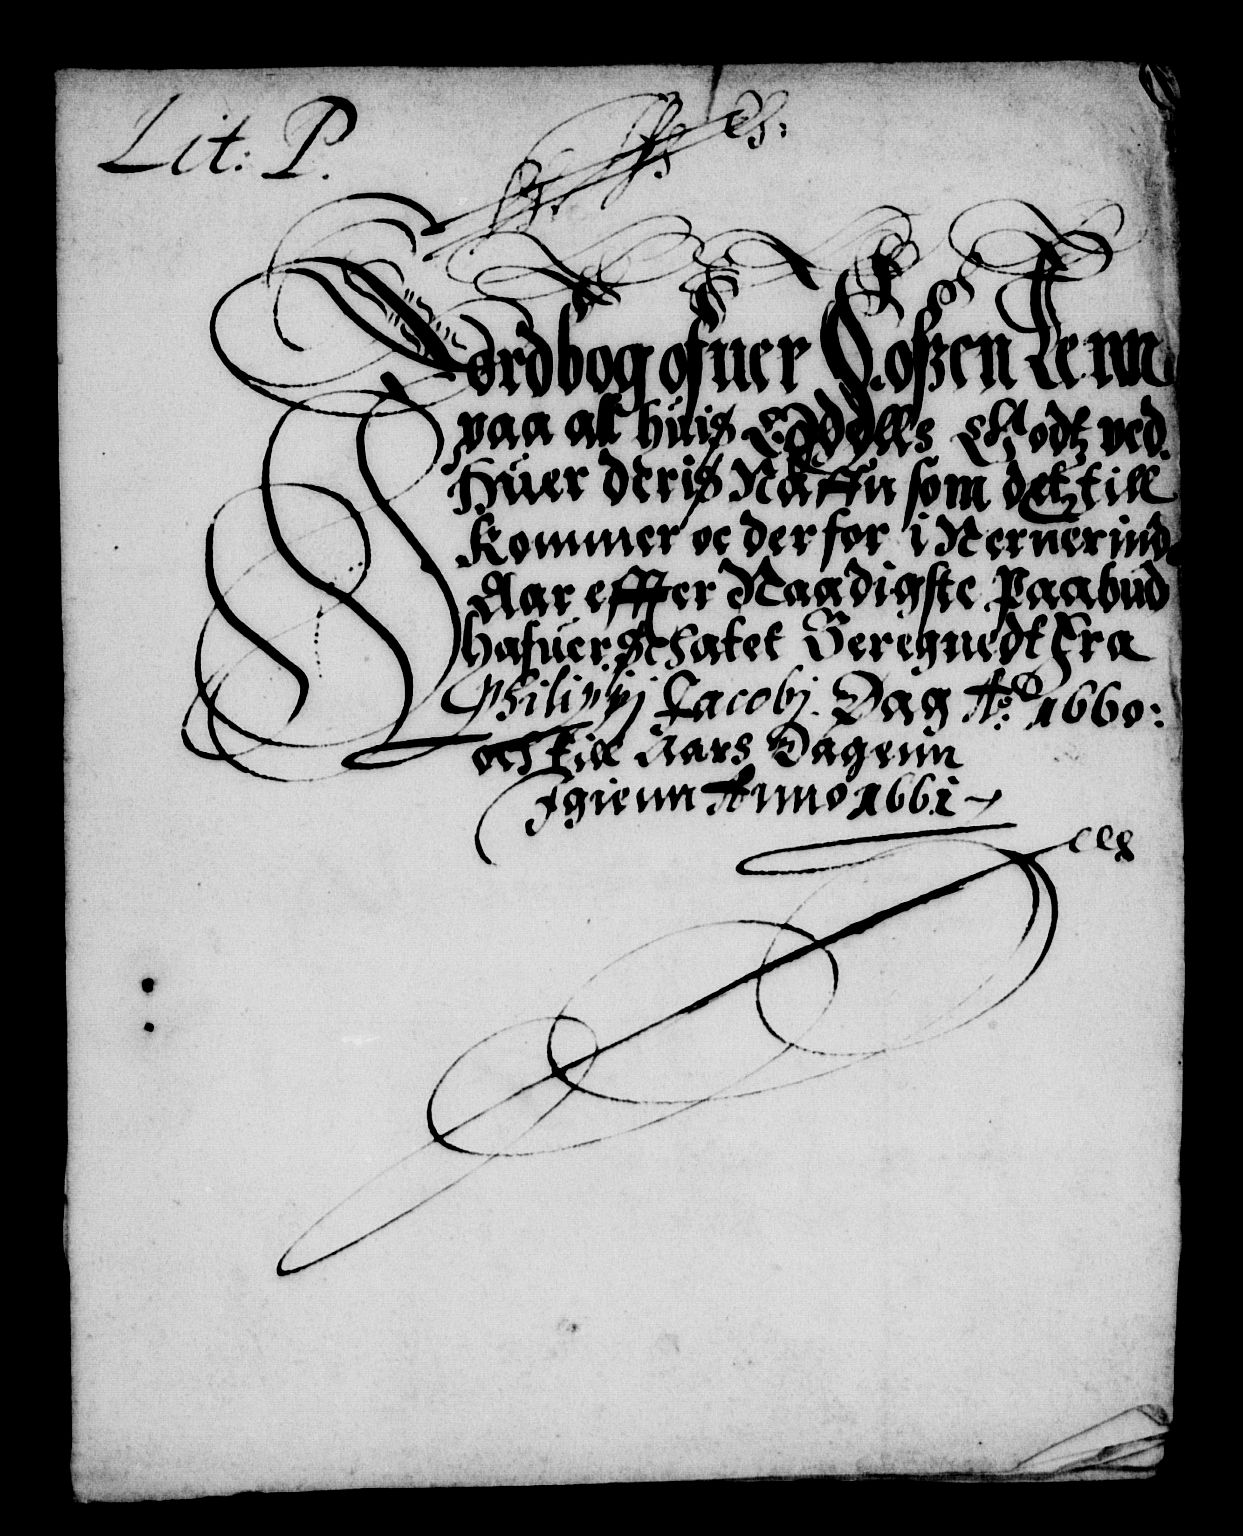 Lit: P.
Jordbog ofuer Voszen Lenn
paa alt huis Adells Godtz ved.
Huer deris Naffn som detz till
kommer oc der for i Nerverind
Aar effter Naadigste Paabud
hafuer schatet Beregnedt Fra
Philippj Jacobj Dag Ao 1660:
och till Aars Dagenn
Igienn Anno 1661